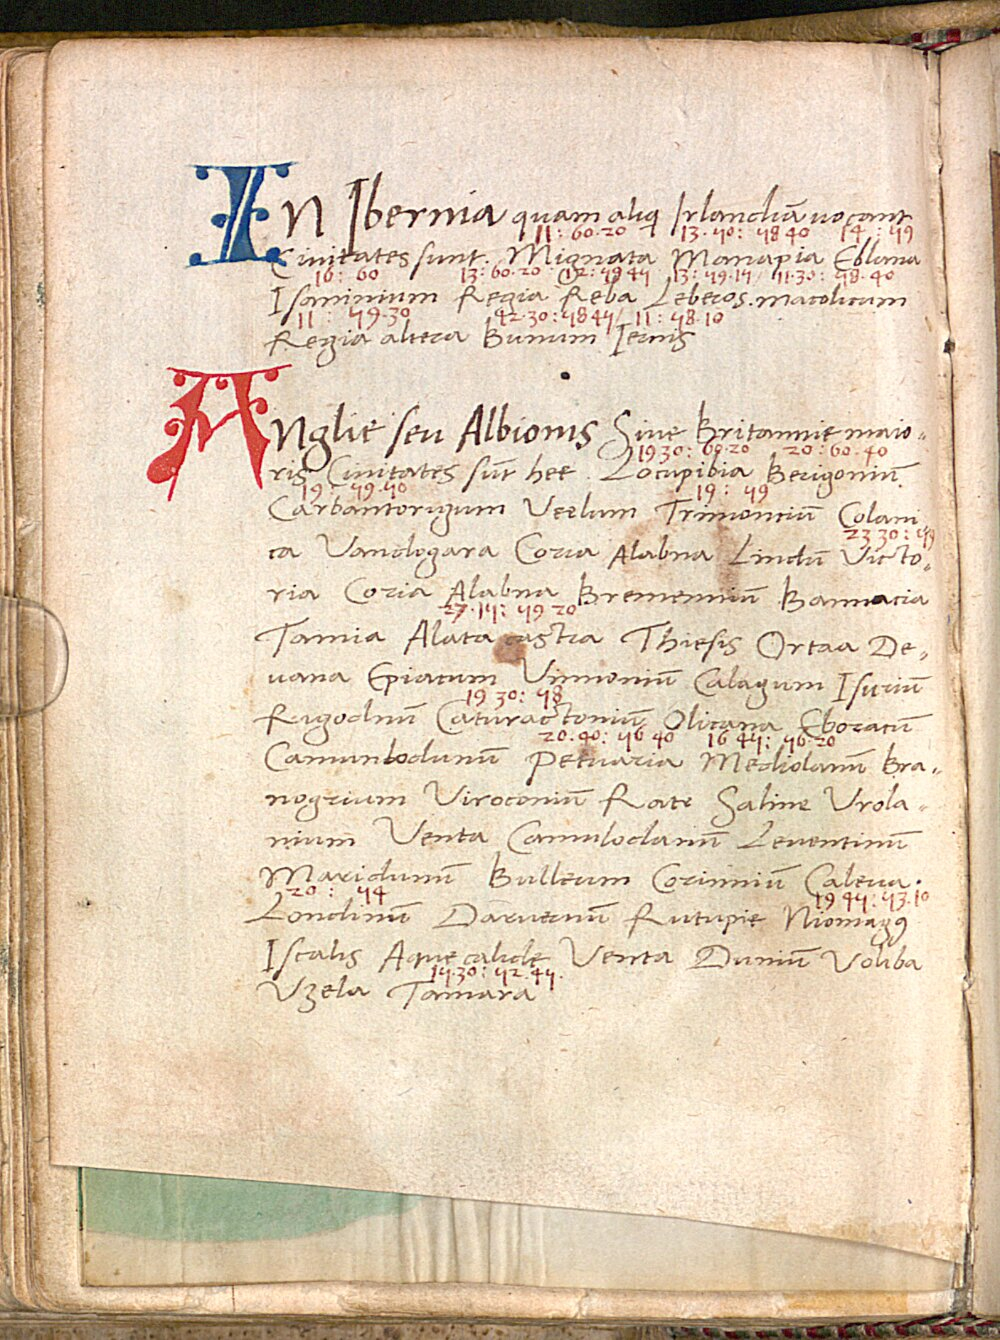 In Ibernia quam aliq Irlandiā uocant
11 : 60 · 20 13 · 50 : 58 40 14 : 59
Ciuitates sunt. Mignata Manapia Eblana
16 : 60 13 : 60 · 20 12 : 59 45 13 : 59 · 15 / 11 · 30 : 58 · 40
Isaminium Regia Reba Leberos . macolicum
11 : 59 · 30 12 · 30 : 58 45 / 11 : 58 · 10
Regia altera Bunum Iernis
Anglie seu Albionis Siue Britannie maio-
19 30 : 60 · 20 20 : 60 · 40
ris Ciuitates sūt hee . Locupibia Berigoniū.
19 : 59 · 50 19 : 59
Carbantorigum Veelum Trimonciū Colani-
23 30 : 59
ca Vandogara Coria Alabna Lindū Victo-
ria Coria Alabna Bremenniū Bannacia
27 · 15 : 59 20
Tamia Alata castra Thiesis Ortaa De-
uana Epiacum Vinnoniū Calagum Isuriū
19 30 : 58
Rigodnū Caturactoniū Olicana Eboracū
20 · 40 : 56 40 16 45 : 56 · 20
Camunlodunū Petuaria Mediolanū Bra-
nogrium Viroconiū Rate Saline Vrola-
nium Venta Camulodanū Leuentinū
Maridunū Bulleum Corinniū Caleua.
20 : 54 19 45 : 53 · 10
Londinū Daruernū Rutupie Niomagꝰ
Iscalis Aque calide Venta Duniū Voliba
15 · 30 : 52 · 45 .
Vzela Tamara